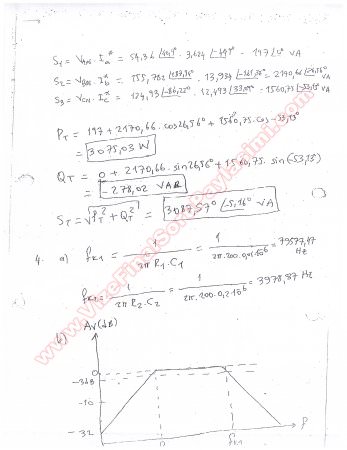 S₁ = V_AN . I_a* = 54,36 . 3,624 = 197 ∠0° VA
S₂ = V_BN . I_b* = 155,782 . 13,934 = 2170,66 ∠26,56° VA
S₃ = V_CN . I_c* = 124,93 ∠-86,22° . 12,493 ∠33,09° = 1560,75 ∠-53,13° VA
P_T = 197 + 2170,66 . cos26,56° + 1560,75 . cos -53,13°
= 3075,03 W
Q_T = 0 + 2170,66 . sin26,56° + 1560,75 . sin(-53,13°)
= -278,02 VAR
S_T = √(P_T² + Q_T²) = 3087,57 ∠-5,16° VA
4. a) f_K1 = 1 / 2π R₁.C₁ = 1 / 2π.200. = 79577,47 Hz
f_K2 = 1 / 2π R₂.C₂ = 1 / 2π.200.0,2. = 3978,87 Hz
b) Av(dB)
0
-3dB
-10
-32
f_K1
f
www.VizeFinalSoruPaylasimi.com